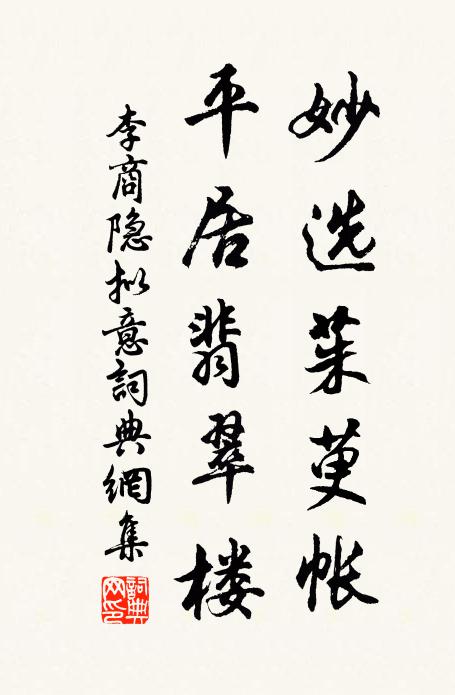 妙选茱萸帐
平居翡翠楼
李商隐拟意詞典網集
詞典网印